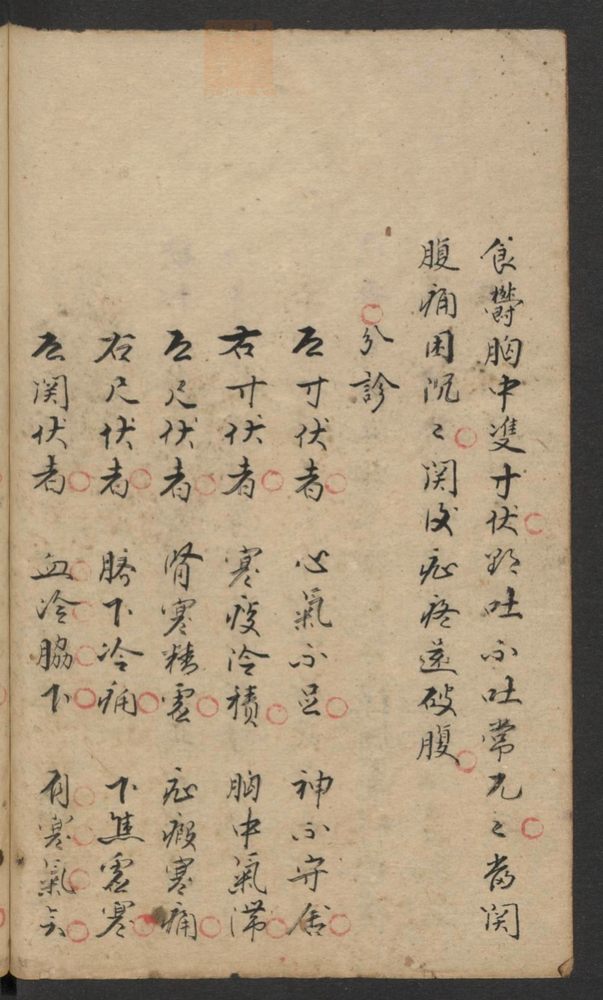 食鬱胸中雙寸伏欲吐不吐常兀々當関
腹痛困沉々関後疝疼還破腹
分診
左寸伏者 心氣不足 神不守舍
右寸伏者 寒痰冷積 胸中氣滯
左尺伏者 腎寒精虛 疝瘕寒痛
右尺伏者 臍下冷痛 下焦虛寒
左関伏者 血冷脇下 有寒氣